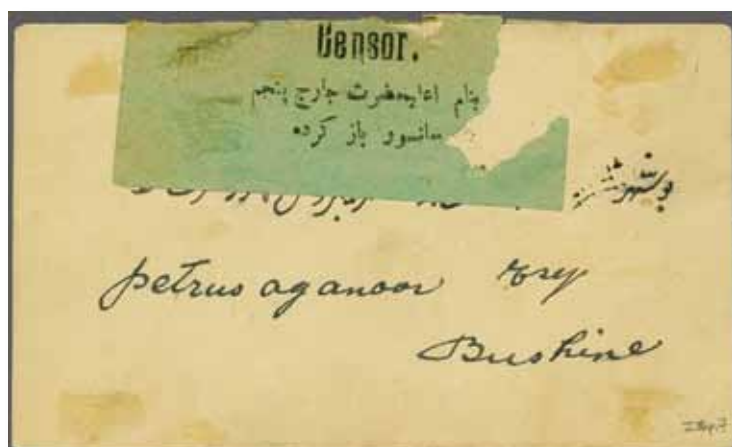 Censor.
بنام اعلیحضرت جارج پنجم
سانسور باز کرده
بوشهر
petrus aganoor Esq
Bushire